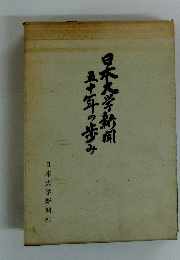 日本大学新聞
五十年の歩み
日本大学新聞社